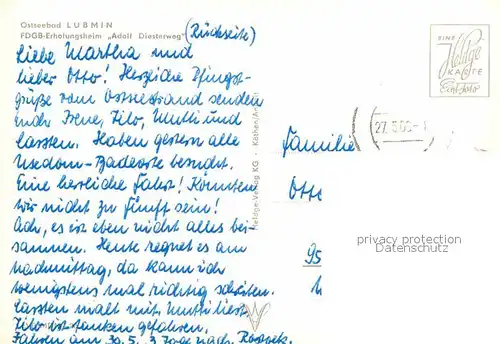 Ostseebad LUBMIN
FDGB-Erholungsheim „Adolf Diesterweg" (Rückseite)
Liebe Martha und
lieber Otto! Herzliche Pfingst-
grüße vom Ostseestrand senden
Euch Irene, Tilo, Mutti und
Carsten. Haben gestern alle
Usedom-Badeorte besucht.
Eine herrliche Fahrt! Könnten
wir nicht zu Fünft sein!
Ach, es ist eben nicht alles bei-
sammen. Heute regnet es am
Nachmittag, da kann ich
wenigstens mal richtig schreiben.
Carsten malt mit, Mutti liest,
Tilo ist tanken gefahren.
Fahren am 30.5. 3 Tage nach Rostock.
Heldge-Verlag KG · Köthen/Anhalt
EINE
Heldge
KARTE
Echt Foto
27.5.
Familie
Otto
95
privacy protection
Datenschutz